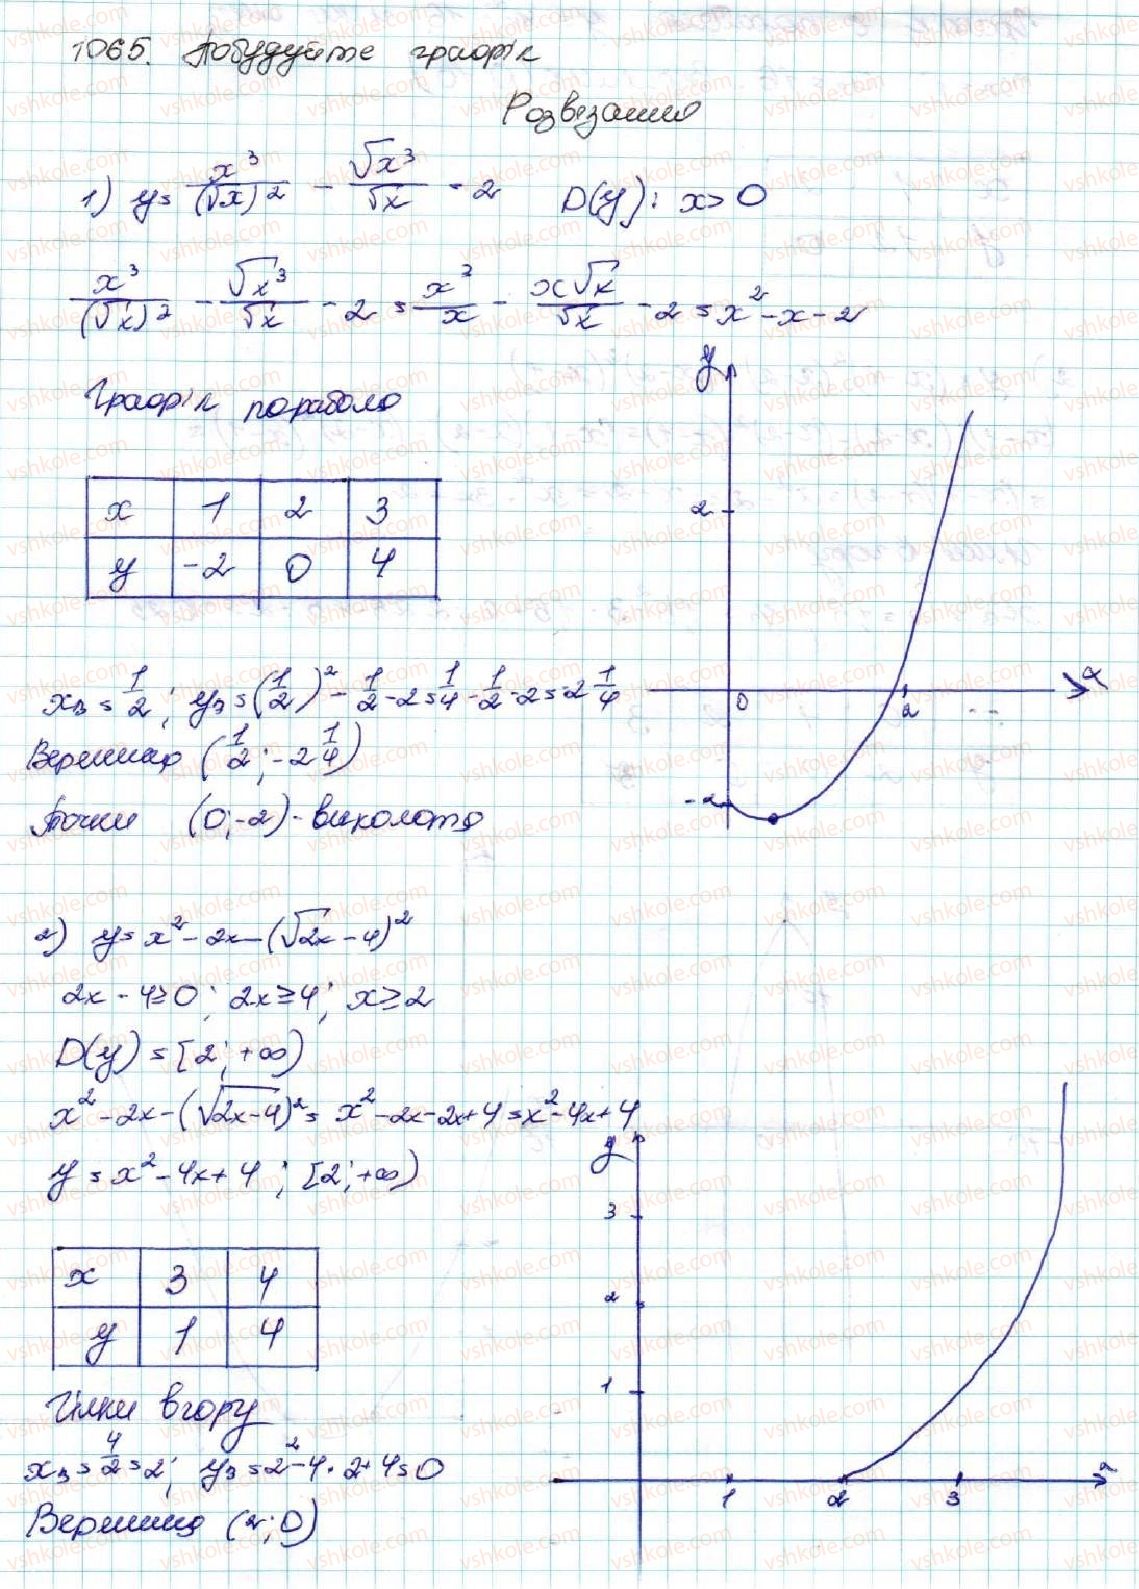 1065. Побудуйте графік
Розвязання
1) y = x³/(√x)² - √x³/√x - 2   D(y): x > 0
x³/(√x)² - √x³/√x - 2 = x³/x - x√x/√x - 2 = x² - x - 2
Графік парабола
x 1 2 3
y -2 0 4
xв = 1/2; yв = (1/2)² - 1/2 - 2 = 1/4 - 1/2 - 2 = -2 1/4
Вершина (1/2; -2 1/4)
Точки (0; -2) - виколота
y
2
0 2 x
-2
2) y = x² - 2x - (√2x - 4)²
2x - 4 ≥ 0; 2x ≥ 4; x ≥ 2
D(y) = [2; +∞)
x² - 2x - (√2x-4)² = x² - 2x - 2x + 4 = x² - 4x + 4
y = x² - 4x + 4; [2; +∞)
x 3 4
y 1 4
Гілки вгору
xв = 4/2 = 2; yв = 2² - 4·2 + 4 = 0
Вершина (2; 0)
y
3
2
1
1 2 3 x
vshkole.com